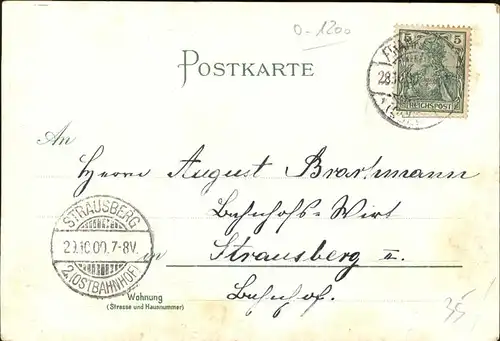 0-1200
POSTKARTE
5 5
REICHSPOST
28.10.00
An
Herrn August Brachmann
Bahnhofs-Wirt
in Strausberg II.
Bahnhof.
STRAUSBERG
29.10.00.7-8V.
2.(OSTBAHNHOF)
Wohnung
(Strasse und Hausnummer)